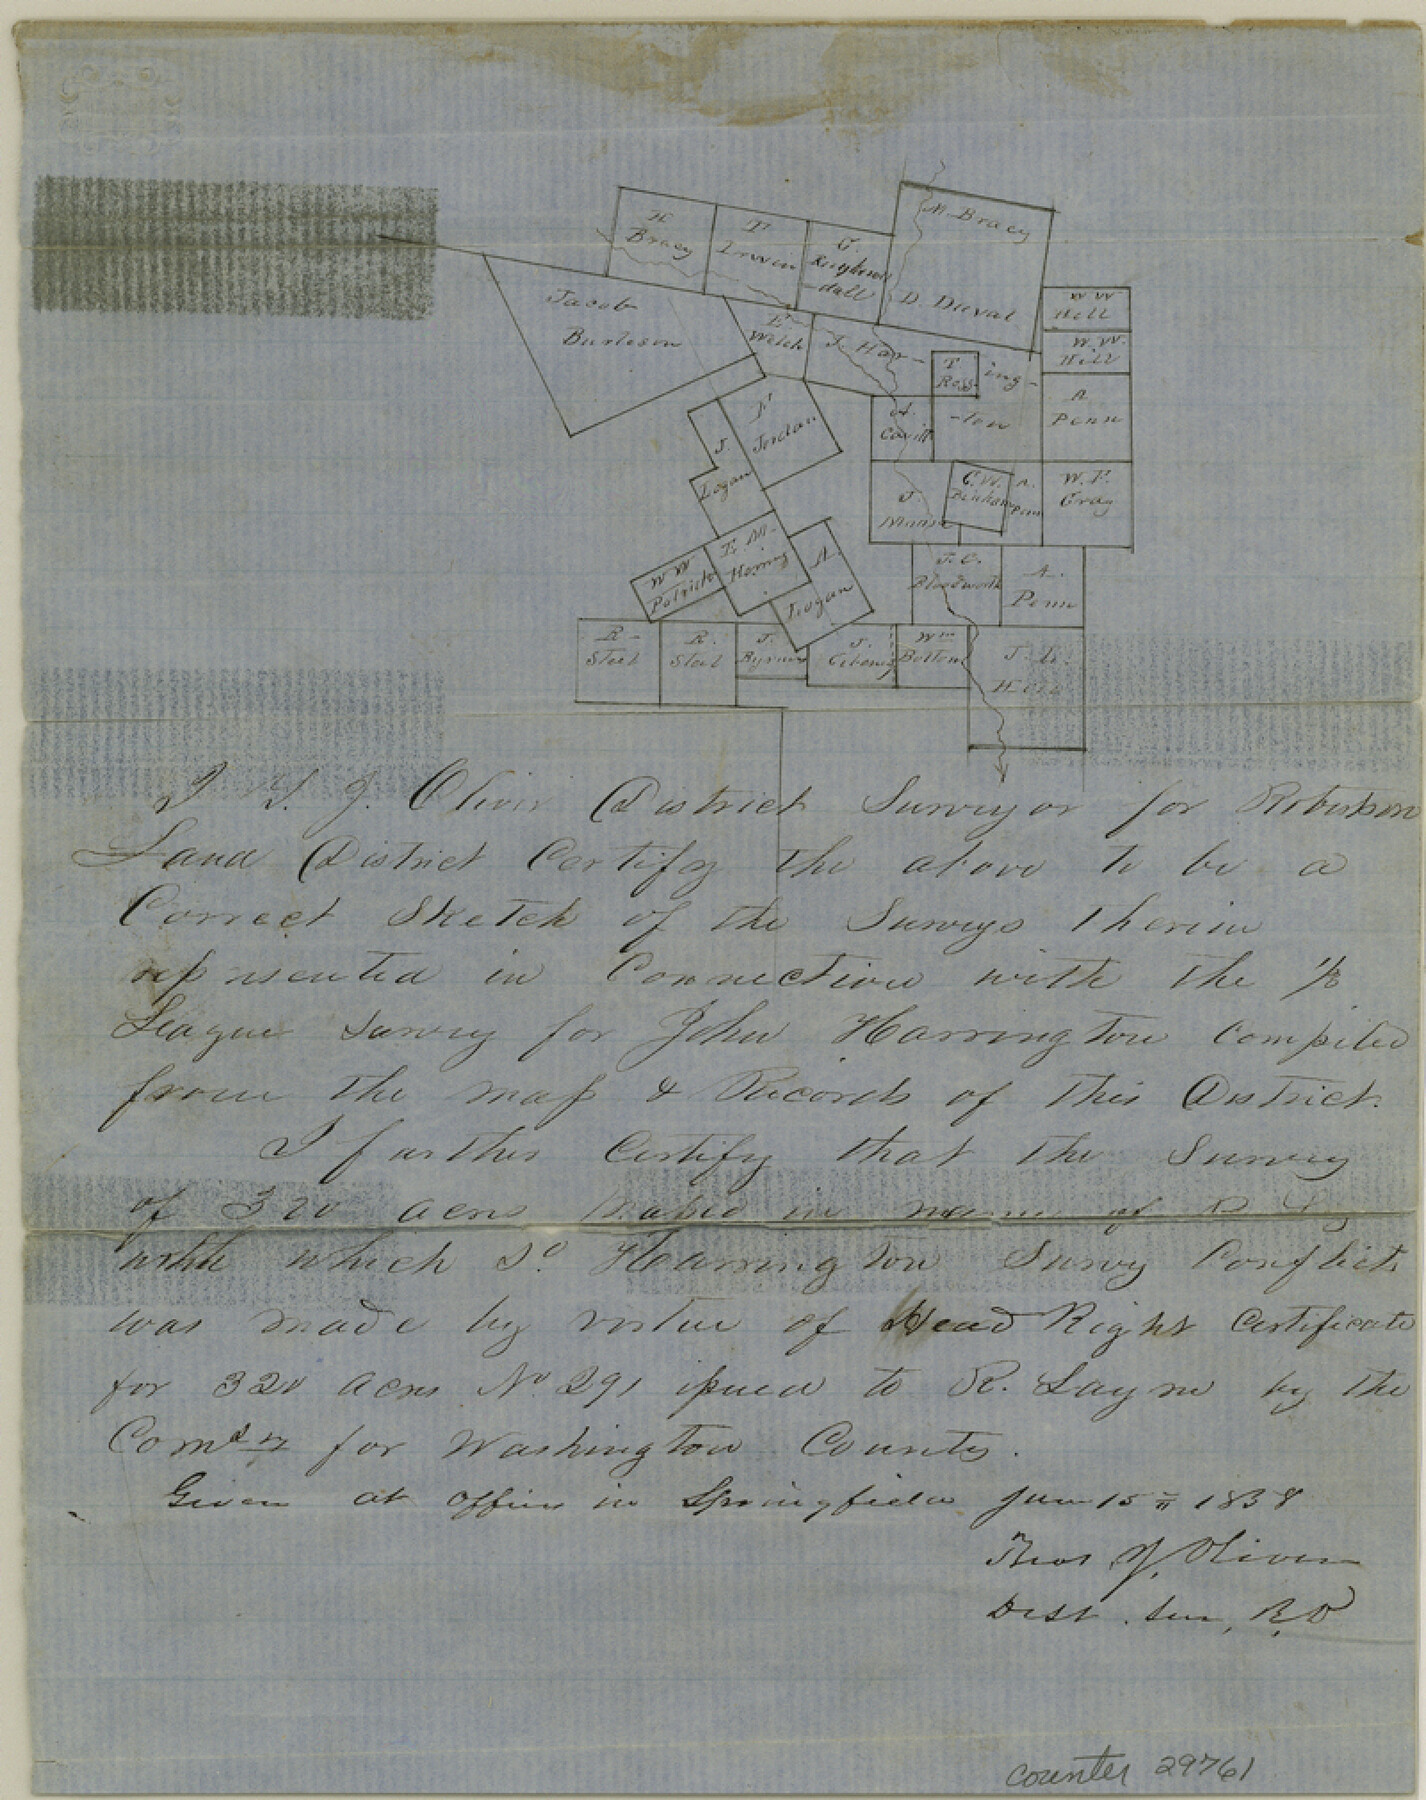 H
Bracy
Irwin
G.
Kuykendall
M. Bracy
D. Duval
Jacob
Burleson
E.
Welch
J. Har-
T
Ross
ing-
-ton
W W
Hill
W. W.
Hill
A
Penn
A.
Cavitt
Jordan
J.
Logan
J.
C. W.
A.
Penn
W. P.
Gray
W W
Patrick
E. M.
A.
Logan
J. C.
Bloodworth
A.
Penn
R
Steel
R.
Steel
J.
J.
Wm
Bolton
J.
I T. J. Oliver District Surveyor for Robertson
Land District Certify the above to be a
Correct Sketch of the Surveys therein
represented in Connection with the 1/3
League Survey for John Harrington Compiled
from the map & Records of this District.
I further Certify that the Survey
of 320 acres in name of R
with which Sd. Harrington Survey Conflicts
was made by virtue of Head Right Certificate
for 320 acres No 291 issued to R. Layne by the
for Washington County.
Given at office in Springfield 15
Thos J. Oliver
Dist. Sur, R, D
counter 29761